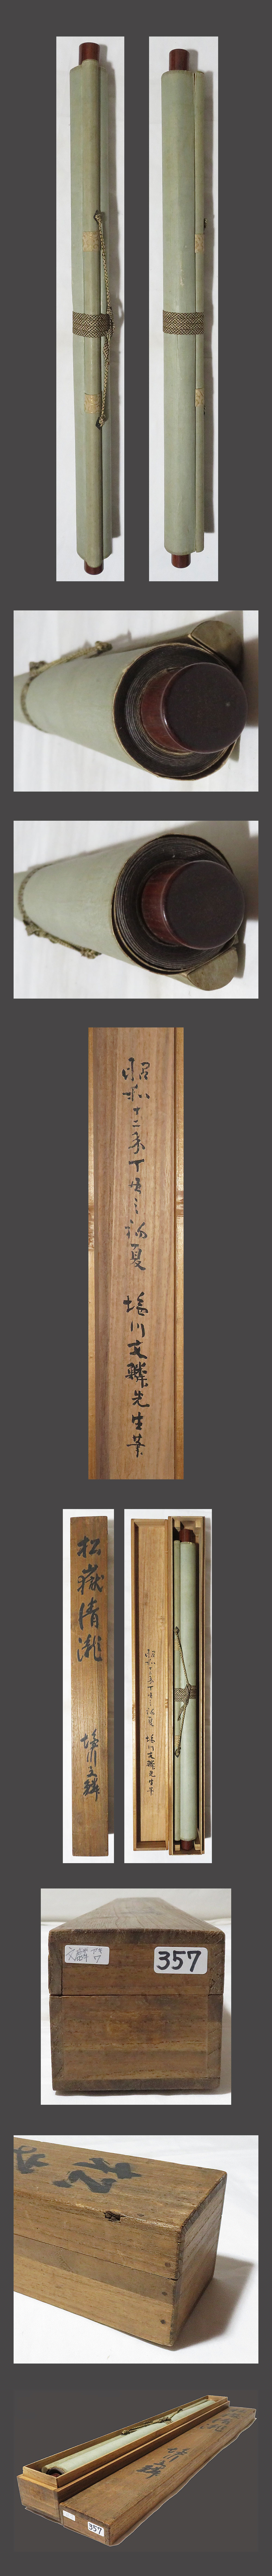 昭和十二年丁丑之初夏
塩川文麟先生筆
松嶽清瀧
塩川文麟
昭和十二年丁丑之初夏
塩川文麟先生筆
文麟
357
357